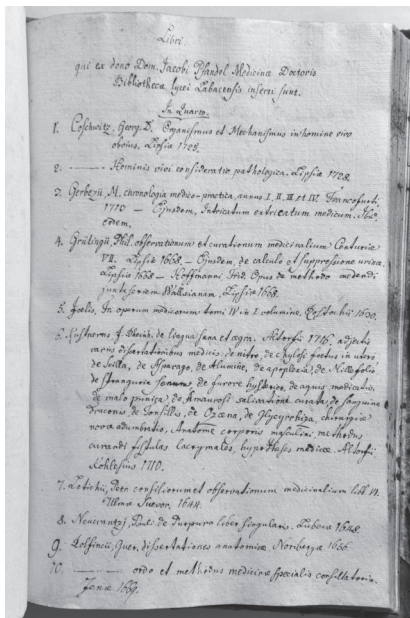 Libri
qui ex dono Dom. Jacobi Pfandel Medicinæ Doctoris
Bibliothecæ Lycei Labacensis inserti sunt.
In Quarto.
1. Coschwitz, Georg. D. Organismus et Mechanismus in homine vivo
obvius. Lipsiæ 1725.
2. Hominis vivi consideratio pathologica. Lipsiæ 1728.
3. Gerbezii, M. chronologia medico-practica, anno I, II, III et IV. Francofurti,
1710 — Ejusdem, Intricatum extricatum medicum. Ibid.
eodem.
4. Grülingii, Phil. observationum et curationum medicinalium Centuriæ
VII. Lipsiæ 1668. — Ejusdem, de calculo et suppressione urinæ,
Lipsiæ 1668 — Hoffmanni, Frid. Opus de methodo medendi
juxta seriem Wallæianam. Lipsiæ 1668.
5. In operum medicorum tomi IV in I volumine. Rostochii 1630.
6. de lingua sana et ægra. Altorfii 1716. adjectis
variis dissertationibus medicis, de nitro, de chylosi foetus in utero
de Scilla, de Asparago, de Alumine, de apoplexia, de Millefolio
de stranguria senum, de furore hysterico, de aquis medicatis,
de malo punica, de Amaurosi salivatione curata, de sanguine
draconis, de Tonsillis, de Ozæna, de Glycyrhiza, chirurgiæ
novæ adumbratio, Anatome corporis masculini methodus
curandi fistulas lacrymales, hypotheses medicæ. Altorfii
Kohlesius 1710.
7. Lotichii, Petr. consiliorum et observationum medicinalium libb. VI.
Ulmæ Suevor. 1644.
8. Neucrantzi, Pauli. de Purpura liber singularis. Lubecæ 1648.
9. Rolfincii, Guer. dissertationes anatomicæ. Noribergæ 1656.
10. ordo et methodus medicinæ specialis consultatoriæ.
Jenæ 1669.